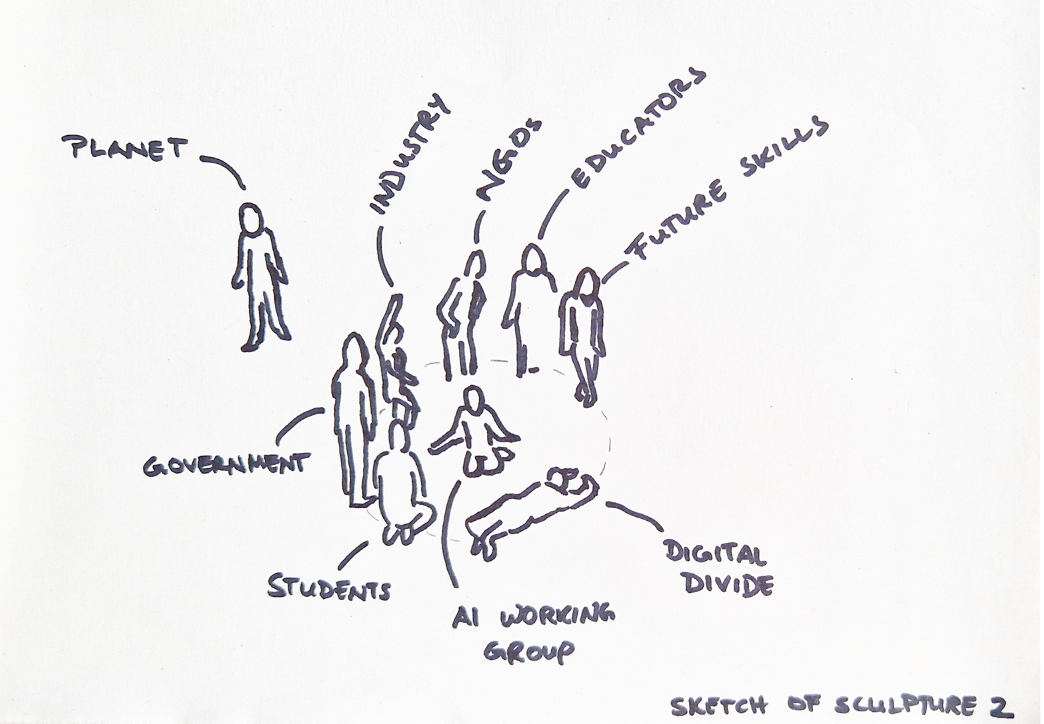 PLANET
INDUSTRY
NGOs
EDUCATORS
FUTURE SKILLS
GOVERNMENT
STUDENTS
AI WORKING
GROUP
DIGITAL
DIVIDE
SKETCH OF SCULPTURE 2